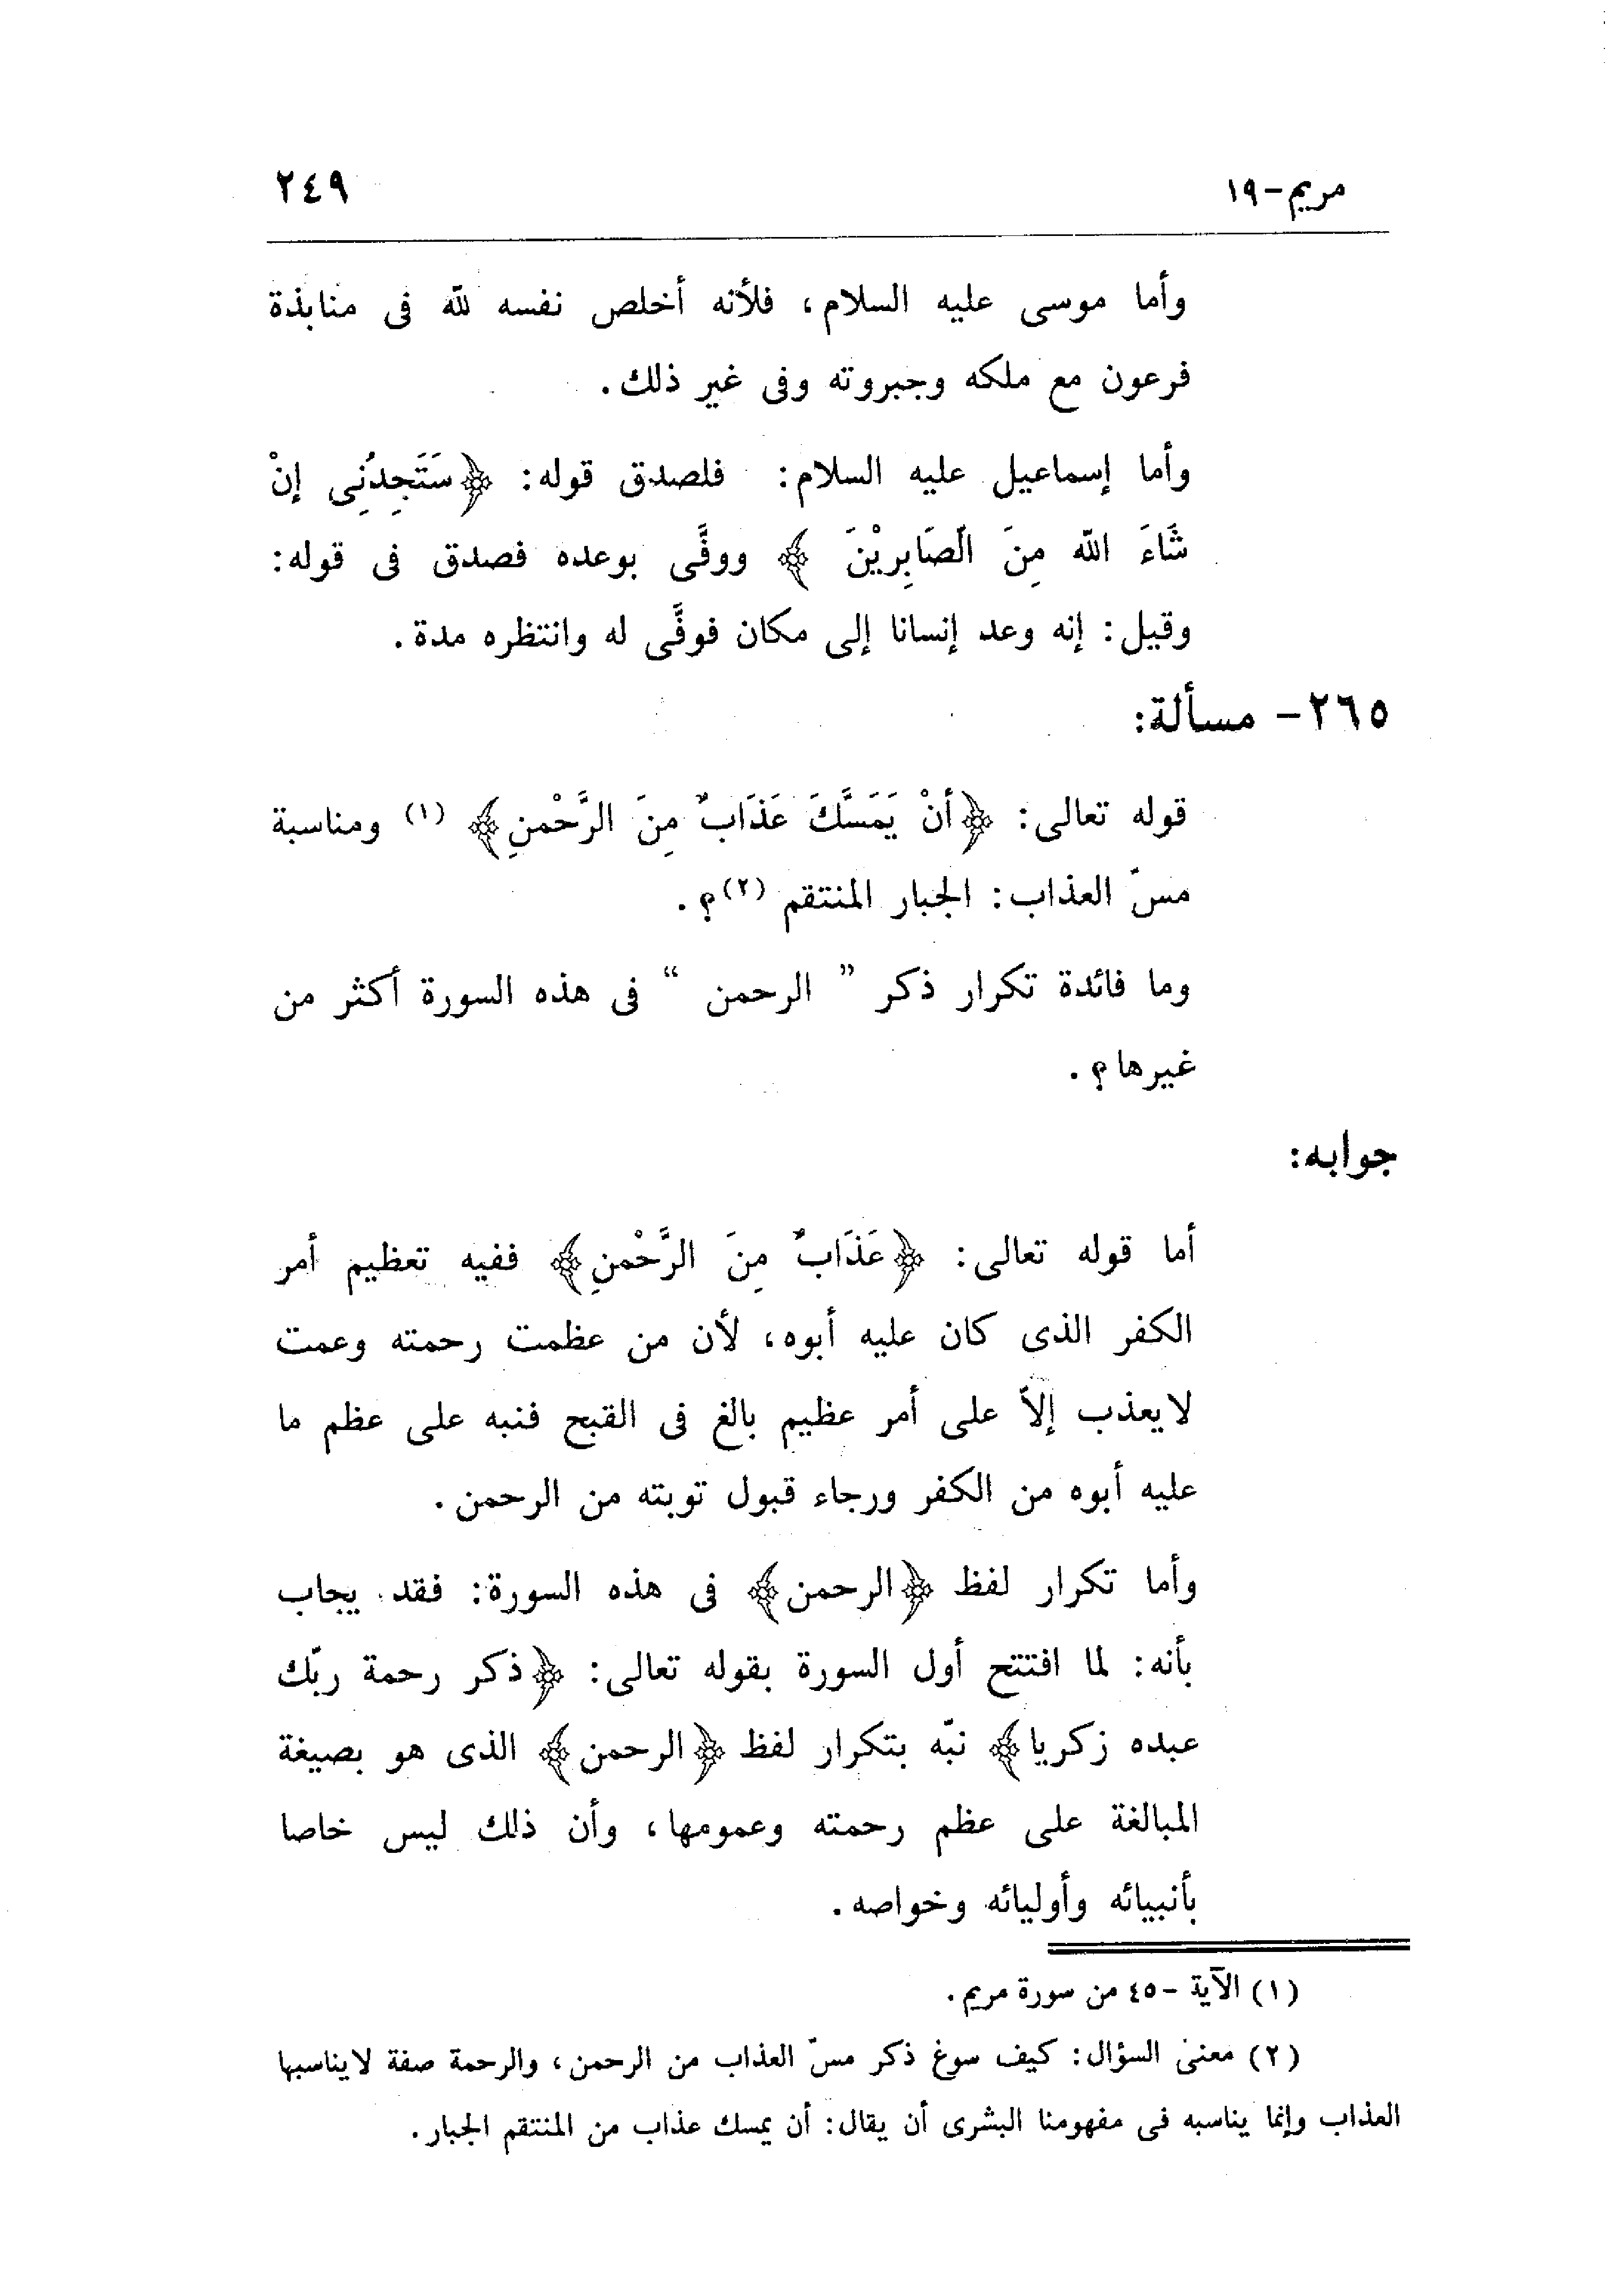 مريم-١٩ ٢٤٩
وأما موسى عليه السلام، فلأنه أخلص نفسه لله فى منابذة
فرعون مع ملكه وجبروته وفى غير ذلك.
وأما إسماعيل عليه السلام: فلصدق قوله: ﴿سَتَجِدُنِى إنْ
شَّاءَ الله مِنَ الّصَابِريْنَ ﴾ ووفَّى بوعده فصدق فى قوله:
وقيل: إنه وعد إنسانا إلى مكان فوفَّى له وانتظره مدة.
٢٦٥- مسألة:
قوله تعالى: ﴿أنْ يَمَسَّكَ عَذَابٌ مِنَ الرَّحْمنِ﴾ (١) ومناسبة
مسّ العذاب: الجبار المنتقم (٢)؟.
وما فائدة تكرار ذكر ” الرحمن “ فى هذه السورة أكثر من
غيرها؟.
جوابه:
أما قوله تعالى: ﴿عَذَابٌ مِنَ الرَّحْمنِ﴾ ففيه تعظيم أمر
الكفر الذى كان عليه أبوه، لأن من عظمت رحمته وعمت
لايعذب إلاّ على أمر عظيم بالغ فى القبح فنبه على عظم ما
عليه أبوه من الكفر ورجاء قبول توبته من الرحمن.
وأما تكرار لفظ ﴿الرحمن﴾ فى هذه السورة: فقد يجاب
بأنه: لما افتتح أول السورة بقوله تعالى: ﴿ذكر رحمة ربّك
عبده زكريا﴾ نبّه بتكرار لفظ ﴿الرحمن﴾ الذى هو بصيغة
المبالغة على عظم رحمته وعمومها، وأن ذلك ليس خاصا
بأنبيائه وأوليائه وخواصه.
(١) الآية -٤٥ من سورة مريم.
(٢) معنى السؤال: كيف سوغ ذكر مسّ العذاب من الرحمن، والرحمة صفة لايناسبها
العذاب وإنما يناسبه فى مفهومنا البشرى أن يقال: أن يمسك عذاب من المنتقم الجبار.